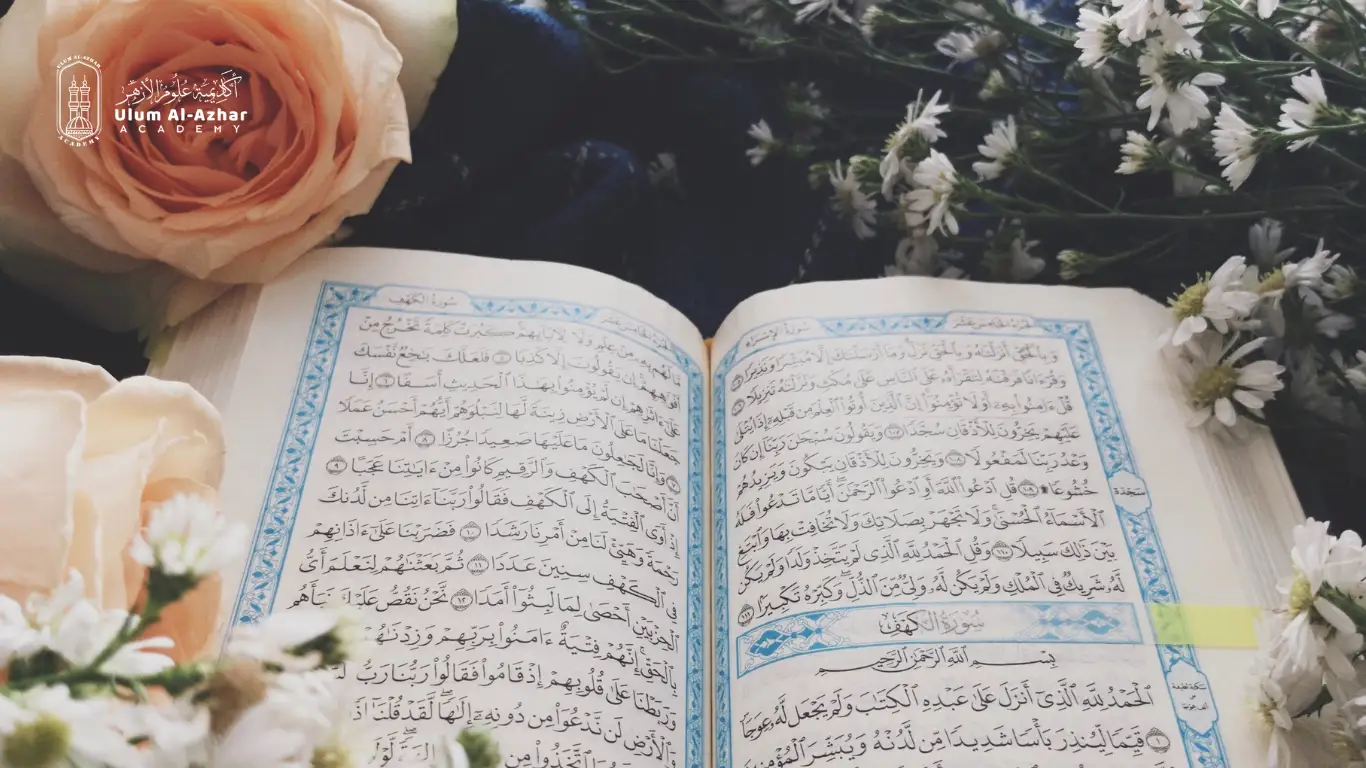 ULUM AL-AZHAR
ACADEMY
أكاديمية علوم الأزهر
Ulum Al-Azhar
ACADEMY
الجزء الخامس عشر
سورة الإسراء
وَبِٱلْحَقِّ أَنزَلْنَٰهُ وَبِٱلْحَقِّ نَزَلَ وَمَآ أَرْسَلْنَٰكَ إِلَّا مُبَشِّرًا وَنَذِيرًا ١٠٥
وَقُرْءَانًا فَرَقْنَٰهُ لِتَقْرَأَهُۥ عَلَى ٱلنَّاسِ عَلَىٰ مُكْثٍ وَنَزَّلْنَٰهُ تَنزِيلًا ١٠٦
قُلْ ءَامِنُوا۟ بِهِۦٓ أَوْ لَا تُؤْمِنُوٓا۟ إِنَّ ٱلَّذِينَ أُوتُوا۟ ٱلْعِلْمَ مِن قَبْلِهِۦٓ إِذَا يُتْلَىٰ
عَلَيْهِمْ يَخِرُّونَ لِلْأَذْقَانِ سُجَّدًا ١٠٧ وَيَقُولُونَ سُبْحَٰنَ رَبِّنَآ إِن كَانَ
وَعْدُ رَبِّنَا لَمَفْعُولًا ١٠٨ وَيَخِرُّونَ لِلْأَذْقَانِ يَبْكُونَ وَيَزِيدُهُمْ
خُشُوعًا ۩ ١٠٩ قُلِ ٱدْعُوا۟ ٱللَّهَ أَوِ ٱدْعُوا۟ ٱلرَّحْمَٰنَ ۖ أَيًّا مَّا تَدْعُوا۟ فَلَهُ
سجدة
ٱلْأَسْمَآءُ ٱلْحُسْنَىٰ ۚ وَلَا تَجْهَرْ بِصَلَاتِكَ وَلَا تُخَافِتْ بِهَا وَٱبْتَغِ
بَيْنَ ذَٰلِكَ سَبِيلًا ١١٠ وَقُلِ ٱلْحَمْدُ لِلَّهِ ٱلَّذِى لَمْ يَتَّخِذْ وَلَدًا وَلَمْ يَكُن
لَّهُۥ شَرِيكٌ فِى ٱلْمُلْكِ وَلَمْ يَكُن لَّهُۥ وَلِىٌّ مِّنَ ٱلذُّلِّ ۖ وَكَبِّرْهُ تَكْبِيرًۢا ١١١
سُورَةُ الكَهْفِ
بِسْمِ ٱللَّهِ ٱلرَّحْمَٰنِ ٱلرَّحِيمِ
ٱلْحَمْدُ لِلَّهِ ٱلَّذِىٓ أَنزَلَ عَلَىٰ عَبْدِهِ ٱلْكِتَٰبَ وَلَمْ يَجْعَل لَّهُۥ عِوَجَا
١ قَيِّمًا لِّيُنذِرَ بَأْسًا شَدِيدًا مِّن لَّدُنْهُ وَيُبَشِّرَ ٱلْمُؤْمِنِينَ
الجزء الخامس عشر
سورة الكهف
مَّا لَهُم بِهِۦ مِنْ عِلْمٍ وَلَا لِءَابَآئِهِمْ ۚ كَبُرَتْ كَلِمَةً تَخْرُجُ مِنْ
أَفْوَٰهِهِمْ ۚ إِن يَقُولُونَ إِلَّا كَذِبًا ٥ فَلَعَلَّكَ بَٰخِعٌ نَّفْسَكَ
عَلَىٰٓ ءَاثَٰرِهِمْ إِن لَّمْ يُؤْمِنُوا۟ بِهَٰذَا ٱلْحَدِيثِ أَسَفًا ٦ إِنَّا
جَعَلْنَا مَا عَلَى ٱلْأَرْضِ زِينَةً لَّهَا لِنَبْلُوَهُمْ أَيُّهُمْ أَحْسَنُ عَمَلًا
٧ وَإِنَّا لَجَٰعِلُونَ مَا عَلَيْهَا صَعِيدًا جُرُزًا ٨ أَمْ حَسِبْتَ
أَنَّ أَصْحَٰبَ ٱلْكَهْفِ وَٱلرَّقِيمِ كَانُوا۟ مِنْ ءَايَٰتِنَا عَجَبًا ٩
إِذْ أَوَى ٱلْفِتْيَةُ إِلَى ٱلْكَهْفِ فَقَالُوا۟ رَبَّنَآ ءَاتِنَا مِن لَّدُنكَ
رَحْمَةً وَهَيِّئْ لَنَا مِنْ أَمْرِنَا رَشَدًا ١٠ فَضَرَبْنَا عَلَىٰٓ ءَاذَانِهِمْ
فِى ٱلْكَهْفِ سِنِينَ عَدَدًا ١١ ثُمَّ بَعَثْنَٰهُمْ لِنَعْلَمَ أَىُّ
ٱلْحِزْبَيْنِ أَحْصَىٰ لِمَا لَبِثُوٓا۟ أَمَدًا ١٢ نَّحْنُ نَقُصُّ عَلَيْكَ نَبَأَهُم
بِٱلْحَقِّ ۚ إِنَّهُمْ فِتْيَةٌ ءَامَنُوا۟ بِرَبِّهِمْ وَزِدْنَٰهُمْ
وَرَبَطْنَا عَلَىٰ قُلُوبِهِمْ إِذْ قَامُوا۟ فَقَالُوا۟ رَبُّنَا رَبُّ
وَٱلْأَرْضِ لَن نَّدْعُوَا۟ مِن دُونِهِۦٓ إِلَٰهًا ۖ لَّقَدْ قُلْنَآ إِذًا
ٱتَّخَذُوا۟ مِن